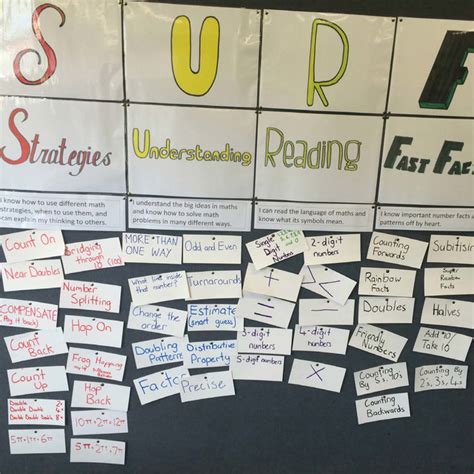 S
U
R
F
Strategies
Understanding
Reading
FAST FAC
I know how to use different math
strategies, when to use them, and
can explain my thinking to others.
I understand the big ideas in maths
and know how to solve math
problems in many different ways.
I can read the language of maths and
know what its symbols mean.
I know important number facts
patterns off by heart.
Count On
Near Doubles
COMPENSATE
Count Back
Count Up
Double 2x
Double Double 4x
Double Double Double 8x
5π+π=6π
Bridging through 10
Number Splitting
Hop On
Frog Hopping
Hop Back
10π+2π=12π
5π+2π=7π
MORE THAN ONE WAY
What lives inside that number?
Change the order
Doubling Patterns
Factors
Odd and Even
Turnarounds
Estimate (smart guess)
Distributive Property
Precise
Single Digits
+
=
3-digit numbers
5-digit numbers
÷
2-digit numbers
-
4-digit numbers
×
Counting Forwards
Rainbow Facts
Doubles
Friendly Numbers
Counting By 5's, 10's
Counting Backwards
Subitising
Super Rainbow Facts
Halves
Add 10/
Take 10
Counting By 2's, 3's, 4's